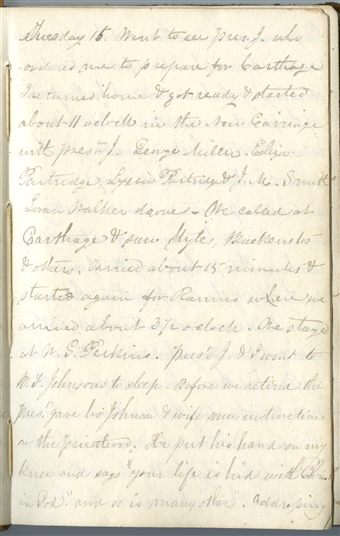 Tuesday 16. Went to see Pres. J. who
ordered me to prepare for Carthage
I returned home & got ready & started
about 11 oclock in the New Carriage
with prest J. George Miller. Eliza
Partridge, Lydia Partridge & J. M. Smith
Loran Walker drove - We called at
Carthage & saw Style, Backenstos
& others. tarried about 15 minutes &
started again for Ramus where we
arrived about 3 1/2 o clock. We stayed
at W. G. Perkins. prest J. & I went to
B. F. Johnsons to sleep. Before we retired the
Prest gave bro Johnson & wife some instructions
on the priesthood. He put his hand on my
knee and says "your life is hid with Christ
in God." and so is many others". Addressing